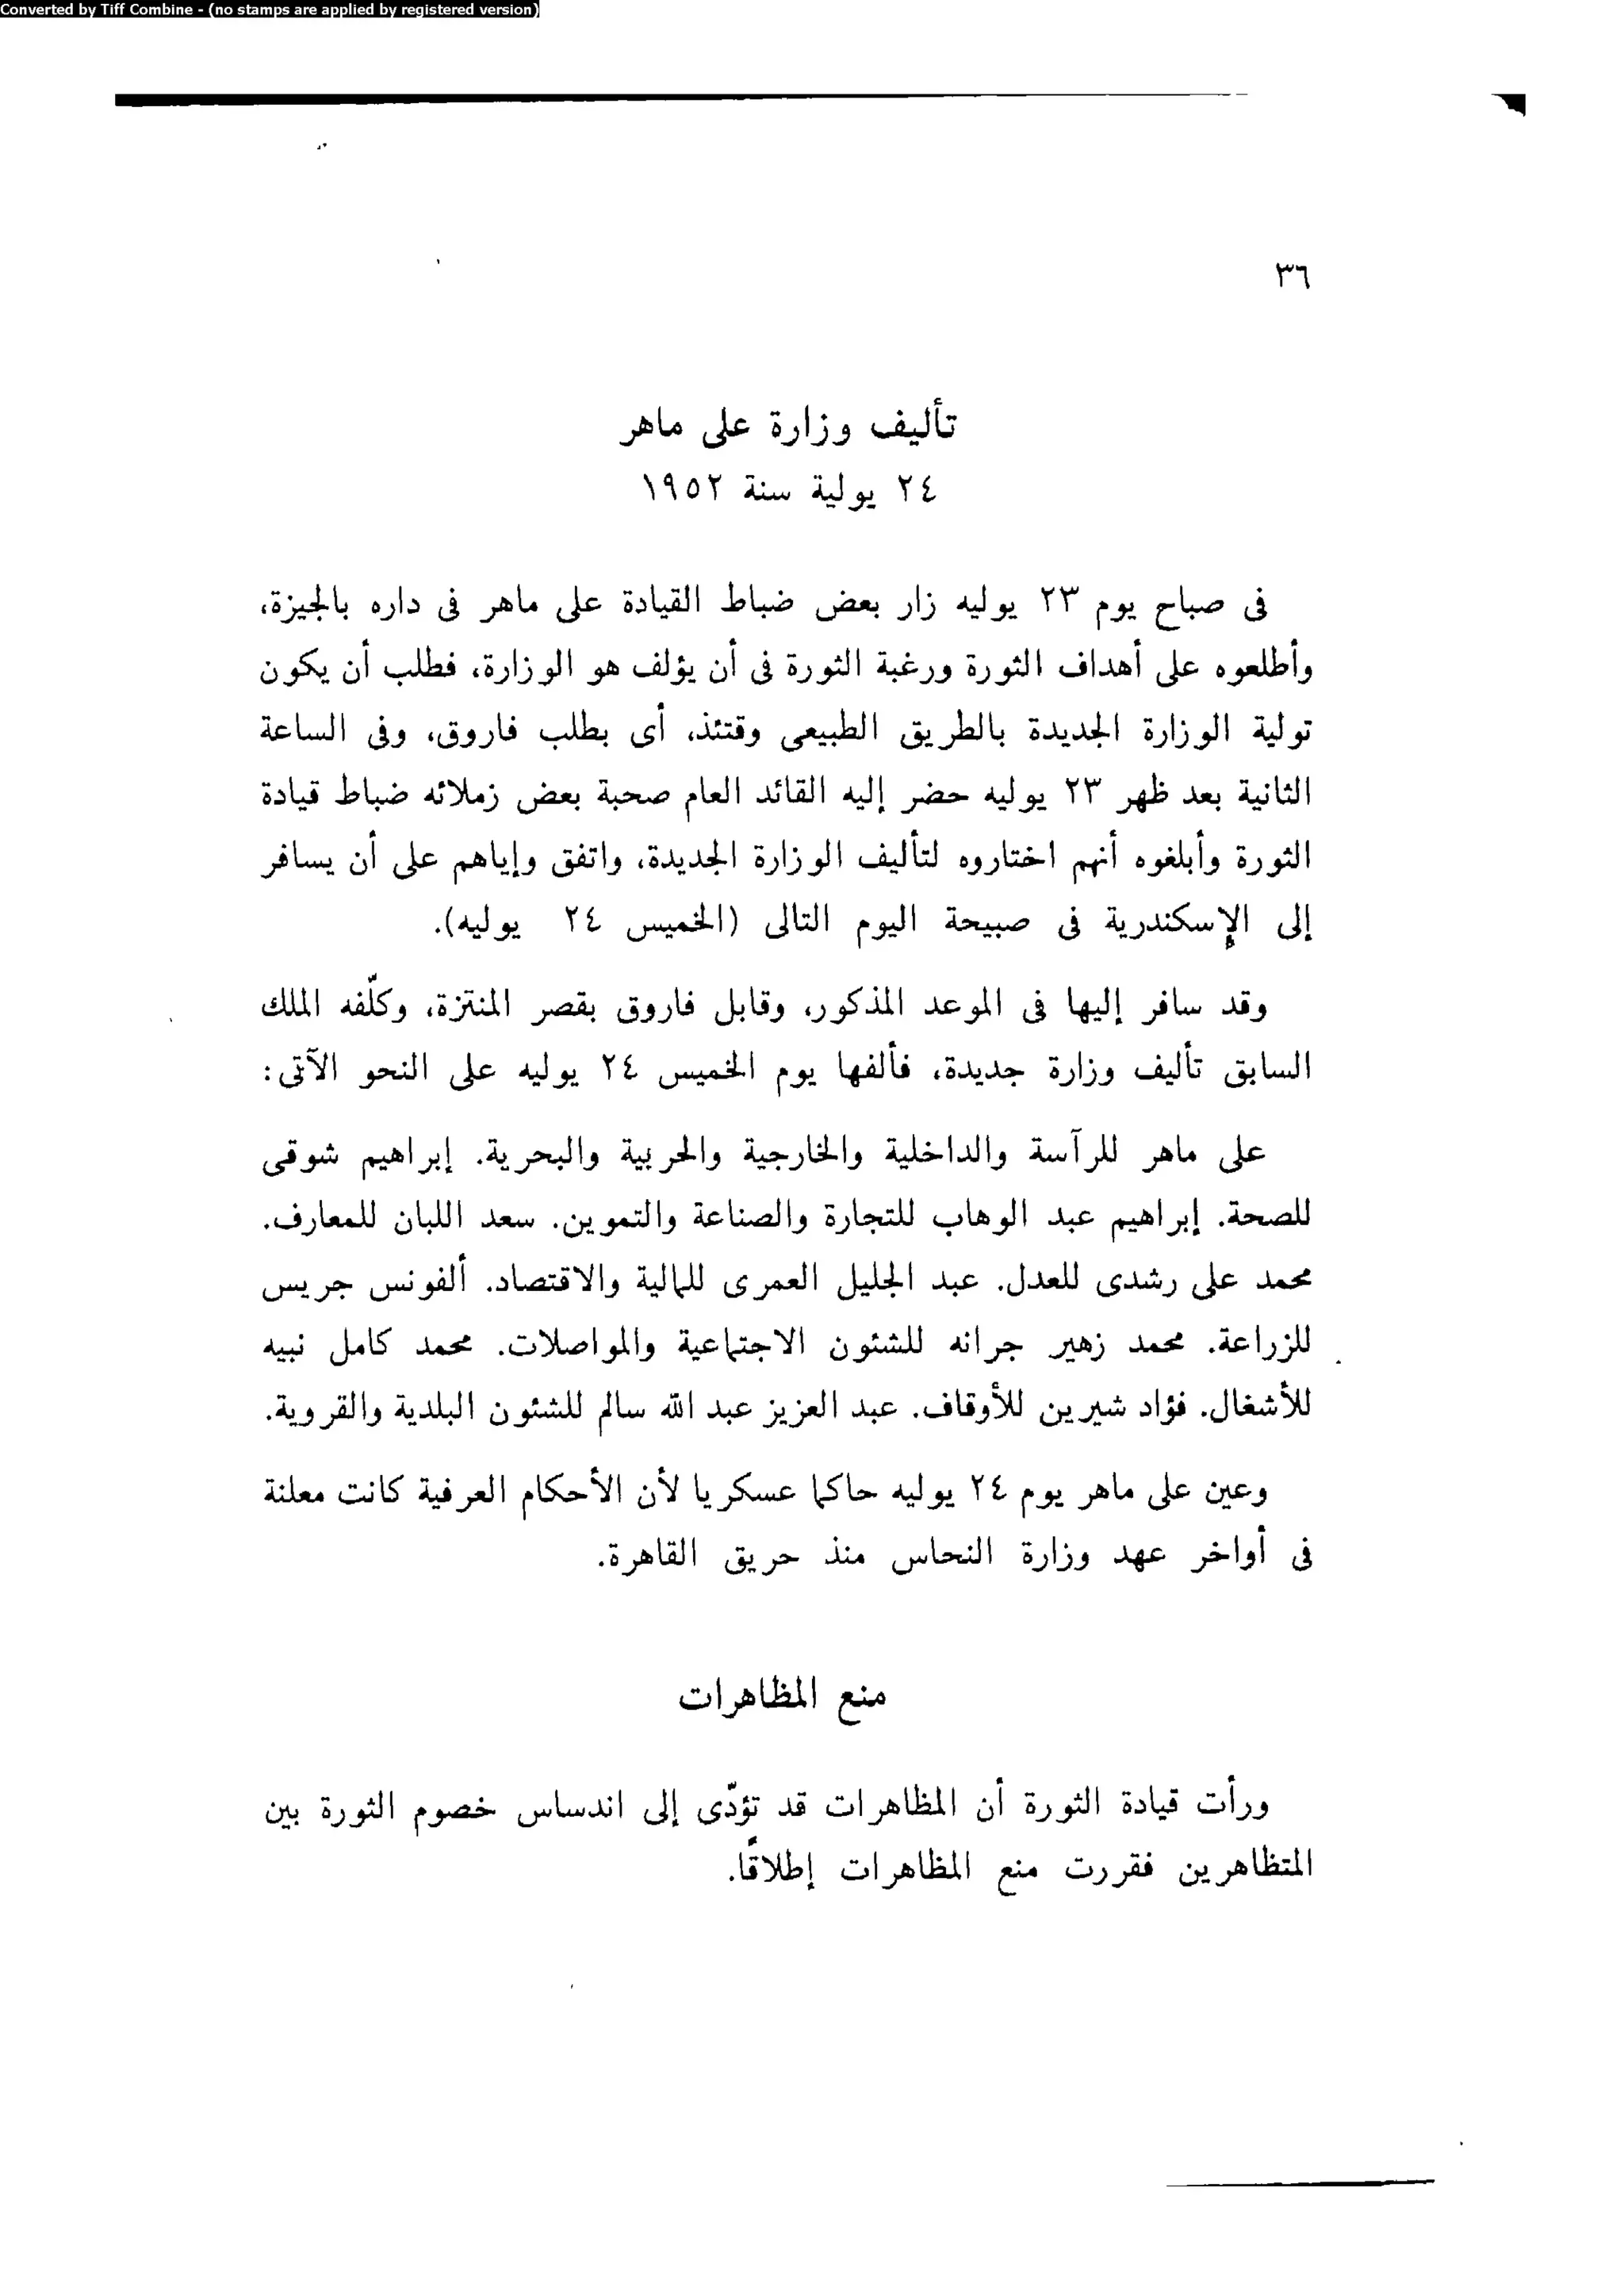 Converted by Tiff Combine - (no stamps are applied by registered version)
٣٦
تأليف وزارة على ماهر
٢٤ يولية سنة ١٩٥٢
فى صباح يوم ٢٣ يوليه زار بعض ضباط القيادة على ماهر فى داره بالجيزة،
وأطلعوه على أهداف الثورة ورغبة الثورة فى أن يؤلف هو الوزارة، فطلب أن يكون
تولية الوزارة الجديدة بالطريق الطبيعى وقتئذ، أى بطلب فاروق، وفى الساعة
الثانية بعد ظهر ٢٣ يوليه حضر إليه القائد العام صحبة بعض زملائه ضباط قيادة
الثورة وأبلغوه أنهم اختاروه لتأليف الوزارة الجديدة، واتفق وإياهم على أن يسافر
إلى الإسكندرية فى صبيحة اليوم التالى (الخميس ٢٤ يوليه).
وقد سافر إليها فى الموعد المذكور، وقابل فاروق بقصر المنتزة، وكلّفه الملك
السابق تأليف وزارة جديدة، فألفها يوم الخميس ٢٤ يوليه على النحو الآتى:
على ماهر للرآسة والداخلية والخارجية والحربية والبحرية. إبراهيم شوقى
للصحة. إبراهيم عبد الوهاب للتجارة والصناعة والتموين. سعد اللبان للمعارف.
محمد على رشدى للعدل. عبد الجليل العمرى للمالية والاقتصاد. ألفونس جريس
للزراعة. محمد زهير جرانه للشئون الاجتماعية والمواصلات. محمد كامل نبيه
للأشغال. فؤاد شيرين للأوقاف. عبد العزيز عبد الله سالم للشئون البلدية والقروية.
وعين على ماهر يوم ٢٤ يوليه حاكما عسكريا لأن الأحكام العرفية كانت معلنة
فى أواخر عهد وزارة النحاس منذ حريق القاهرة.
منع المظاهرات
ورأت قيادة الثورة أن المظاهرات قد تؤدّى إلى اندساس خصوم الثورة بين
المتظاهرين فقررت منع المظاهرات إطلاقًا.